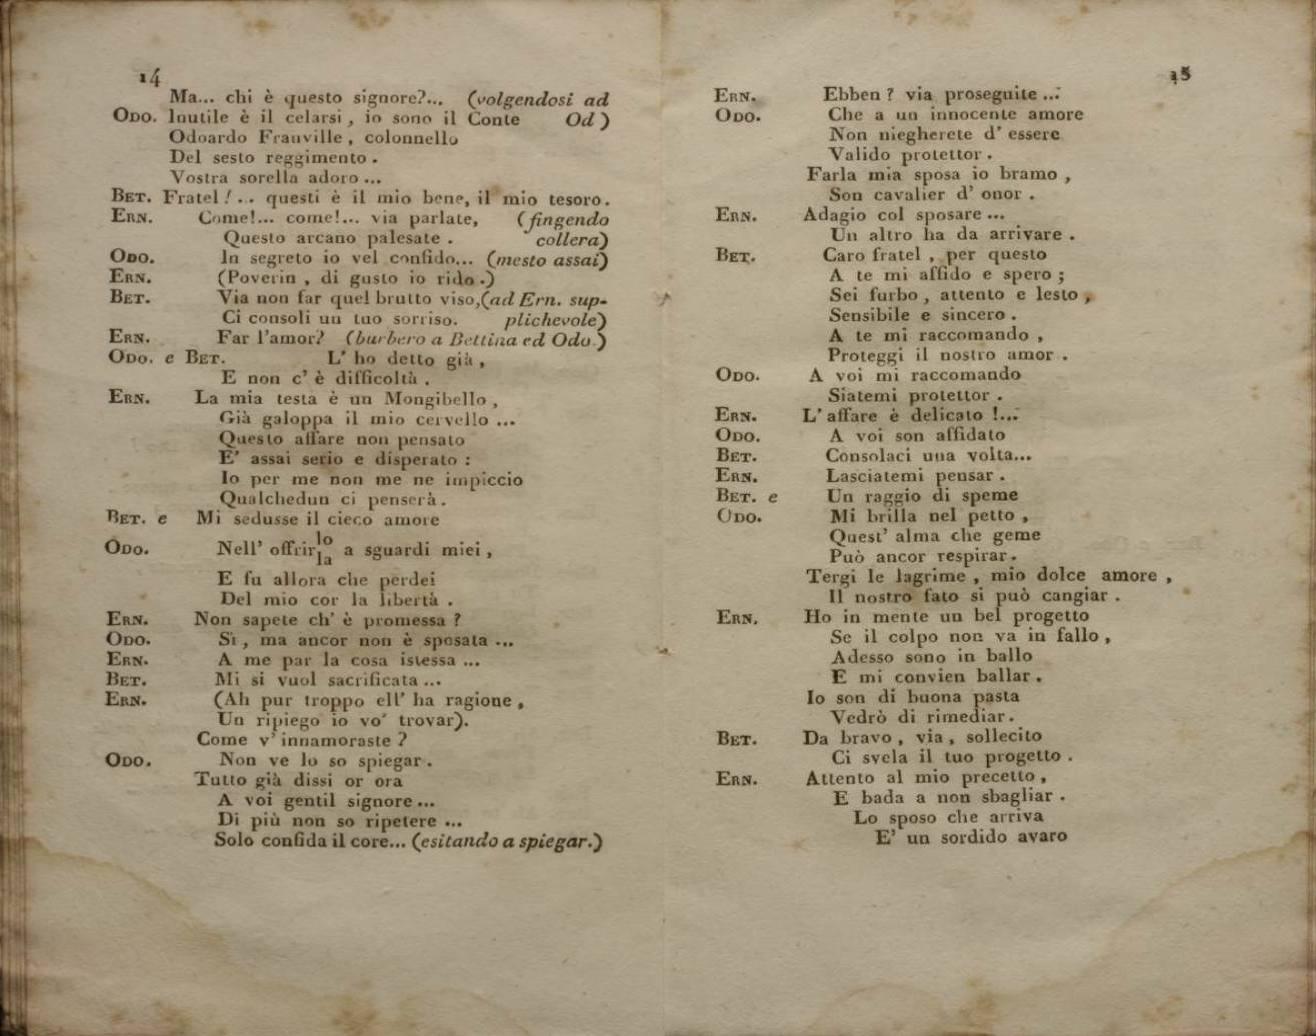 14
Ma... chi è questo signore?... (volgendosi ad
ODO. Inutile è il celarsi, io sono il Conte Od)
Odoardo Franville, colonnello
Del sesto reggimento.
Vostra sorella adoro...
BET. Fratel!... questi è il mio bene, il mio tesoro.
ERN. Come!... come!... via parlate, (fingendo
Questo arcano palesate. collera)
ODO. In segreto io vel confido... (mesto assai)
ERN. (Poverin, di gusto io rido.)
BET. Via non far quel brutto viso,(ad Ern. sup-
Ci consoli un tuo sorriso. plichevole)
ERN. Far l'amor? (burbero a Bettina ed Odo.)
ODO. e BET. L' ho detto già,
E non c' è difficoltà.
ERN. La mia testa è un Mongibello,
Già galoppa il mio cervello...
Questo affare non pensato
E' assai serio e disperato:
Io per me non me ne impiccio
Qualchedun ci penserà.
BET. e Mi sedusse il cieco amore
ODO. Nell' offrir lo la a sguardi miei,
E fu allora che perdei
Del mio cor la libertà.
ERN. Non sapete ch' è promessa?
ODO. Sì, ma ancor non è sposata...
ERN. A me par la cosa istessa...
BET. Mi si vuol sacrificata...
ERN. (Ah pur troppo ell' ha ragione,
Un ripiego io vo' trovar).
Come v' innamoraste?
ODO. Non ve lo so spiegar.
Tutto già dissi or ora
A voi gentil signore...
Di più non so ripetere...
Solo confida il core... (esitando a spiegar.)
15
ERN. Ebben? via proseguite...
ODO. Che a un innocente amore
Non niegherete d' essere
Valido protettor.
Farla mia sposa io bramo,
Son cavalier d' onor.
ERN. Adagio col sposare...
Un altro ha da arrivare.
BET. Caro fratel, per questo
A te mi affido e spero;
Sei furbo, attento e lesto,
Sensibile e sincero.
A te mi raccomando,
Proteggi il nostro amor.
ODO. A voi mi raccomando
Siatemi protettor.
ERN. L' affare è delicato!...
ODO. A voi son affidato
BET. Consolaci una volta...
ERN. Lasciatemi pensar.
BET. e Un raggio di speme
ODO. Mi brilla nel petto,
Quest' alma che geme
Può ancor respirar.
Tergi le lagrime, mio dolce amore,
Il nostro fato si può cangiar.
ERN. Ho in mente un bel progetto
Se il colpo non va in fallo,
Adesso sono in ballo
E mi convien ballar.
Io son di buona pasta
Vedrò di rimediar.
BET. Da bravo, via, sollecito
Ci svela il tuo progetto.
ERN. Attento al mio precetto,
E bada a non sbagliar.
Lo sposo che arriva
E' un sordido avaro